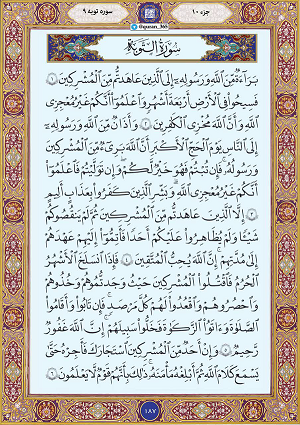 جزء ۱۰
@quran_365
سوره توبه ۹
سُورَةُ التَّوْبَةِ
بَرَاءَةٌ مِّنَ اللَّهِ وَرَسُولِهِ إِلَى الَّذِينَ عَاهَدتُّم مِّنَ الْمُشْرِكِينَ ١
فَسِيحُوا فِي الْأَرْضِ أَرْبَعَةَ أَشْهُرٍ وَاعْلَمُوا أَنَّكُمْ غَيْرُ مُعْجِزِي
اللَّهِ وَأَنَّ اللَّهَ مُخْزِي الْكَافِرِينَ ٢ وَأَذَانٌ مِّنَ اللَّهِ وَرَسُولِهِ
إِلَى النَّاسِ يَوْمَ الْحَجِّ الْأَكْبَرِ أَنَّ اللَّهَ بَرِيءٌ مِّنَ الْمُشْرِكِينَ
وَرَسُولُهُ فَإِن تُبْتُمْ فَهُوَ خَيْرٌ لَّكُمْ وَإِن تَوَلَّيْتُمْ فَاعْلَمُوا
أَنَّكُمْ غَيْرُ مُعْجِزِي اللَّهِ وَبَشِّرِ الَّذِينَ كَفَرُوا بِعَذَابٍ أَلِيمٍ
٣ إِلَّا الَّذِينَ عَاهَدتُّم مِّنَ الْمُشْرِكِينَ ثُمَّ لَمْ يَنقُصُوكُمْ
شَيْئًا وَلَمْ يُظَاهِرُوا عَلَيْكُمْ أَحَدًا فَأَتِمُّوا إِلَيْهِمْ عَهْدَهُمْ
إِلَى مُدَّتِهِمْ إِنَّ اللَّهَ يُحِبُّ الْمُتَّقِينَ ٤ فَإِذَا انسَلَخَ الْأَشْهُرُ
الْحُرُمُ فَاقْتُلُوا الْمُشْرِكِينَ حَيْثُ وَجَدتُّمُوهُمْ وَخُذُوهُمْ
وَاحْصُرُوهُمْ وَاقْعُدُوا لَهُمْ كُلَّ مَرْصَدٍ فَإِن تَابُوا وَأَقَامُوا
الصَّلَوٰةَ وَءَاتَوُا الزَّكَوٰةَ فَخَلُّوا سَبِيلَهُمْ إِنَّ اللَّهَ غَفُورٌ
رَّحِيمٌ ٥ وَإِنْ أَحَدٌ مِّنَ الْمُشْرِكِينَ اسْتَجَارَكَ فَأَجِرْهُ حَتَّى
يَسْمَعَ كَلَامَ اللَّهِ ثُمَّ أَبْلِغْهُ مَأْمَنَهُ ذَٰلِكَ بِأَنَّهُمْ قَوْمٌ لَّا يَعْلَمُونَ ٦
١٨٧